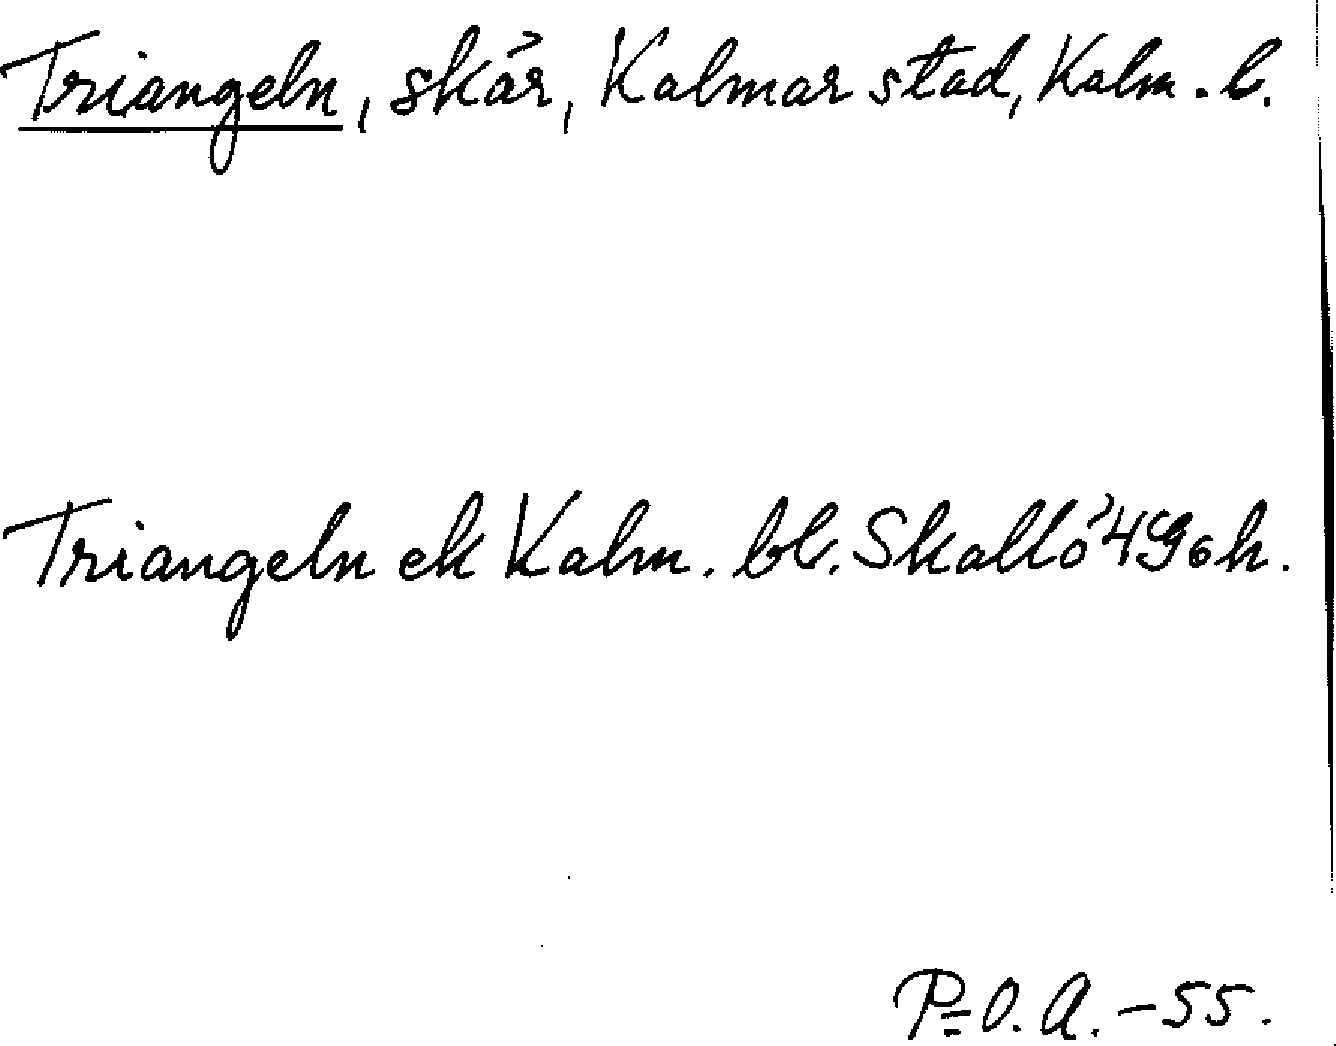 Triangeln, skär, Kalmar stad, Kalm. l.
Triangeln ek Kalm. bl. Skallö 4G6h.
P=O.A. -55.